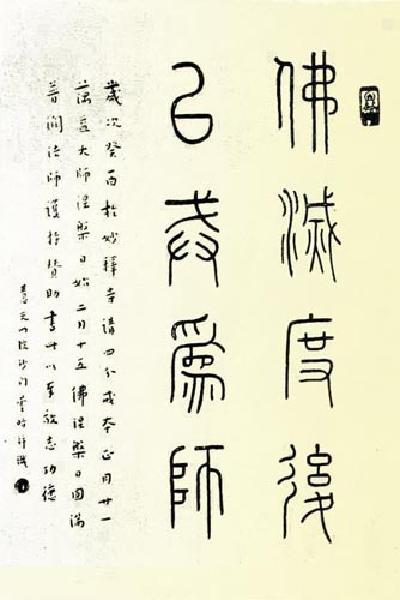 佛滅度後
以戒爲師
歲次癸酉於妙釋寺講四分戒本正月廿一
蕅益大師涅槃日始二月十五佛涅槃日圓滿
普潤法師護持贊助書以志功德
沙門曇昉并識